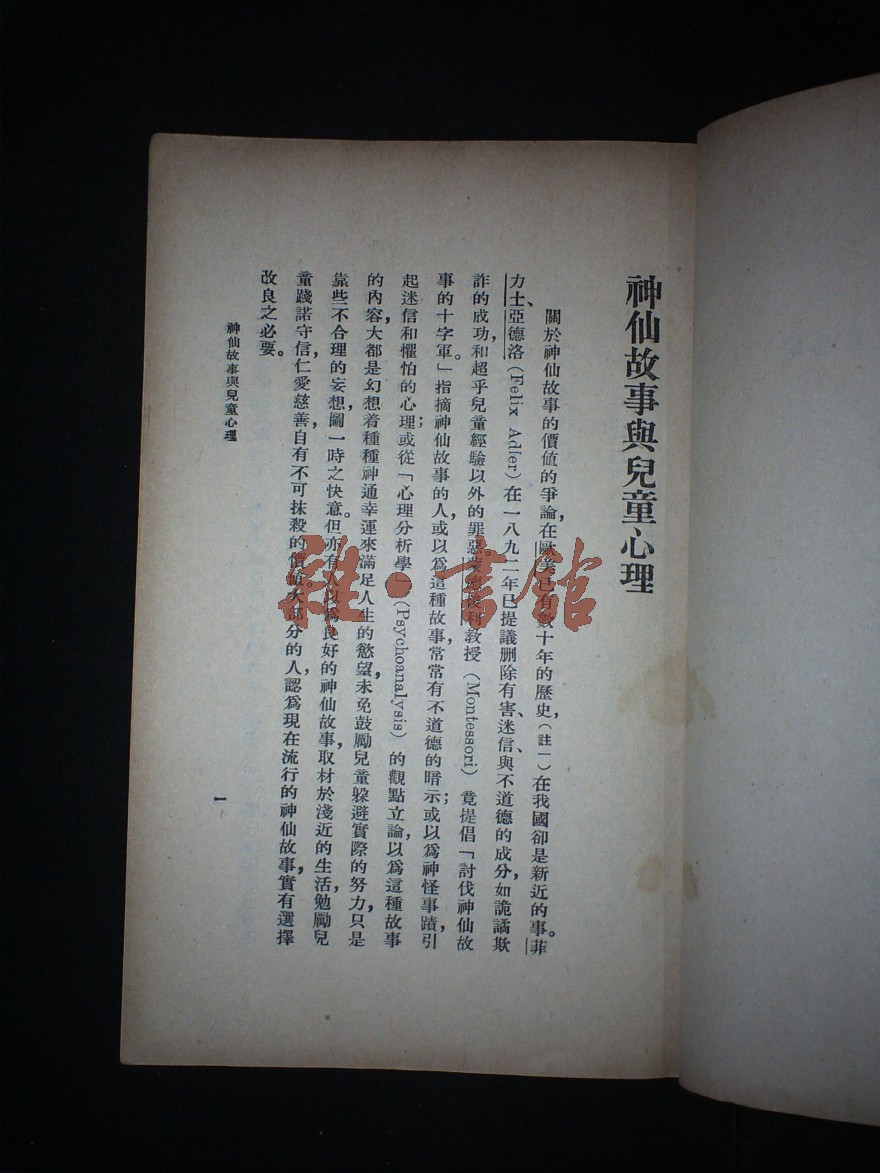 神仙故事與兒童心理
關於神仙故事的價值的爭論，在歐美已有數十年的歷史，（註一）在我國卻是新近的事。菲
力士、亞德洛（Felix Adler）在一八九二年已提議删除有害、迷信與不道德的成分，如詭譎欺
詐的成功，和超乎兒童經驗以外的罪惡。蒙德梭利教授（Montessori）竟提倡「討伐神仙故
事的十字軍。」指摘神仙故事的人，或以爲這種故事常常有不道德的暗示；或以爲神怪事蹟，引
起迷信和懼怕的心理；或從「心理分析學」（Psychoanalysis）的觀點立論，以爲這種故事
的內容，大都是幻想着種種神通幸運來滿足人生的慾望，未免鼓勵兒童躲避實際的努力，只是
靠些不合理的妄想，圖一時之快意。但亦有人以爲良好的神仙故事，取材於淺近的生活，勉勵兒
童踐諾守信，仁愛慈善，自有不可抹殺的價值。大部分的人，認爲現在流行的神仙故事，實有選擇
改良之必要。
神仙故事與兒童心理
一
雜·書館